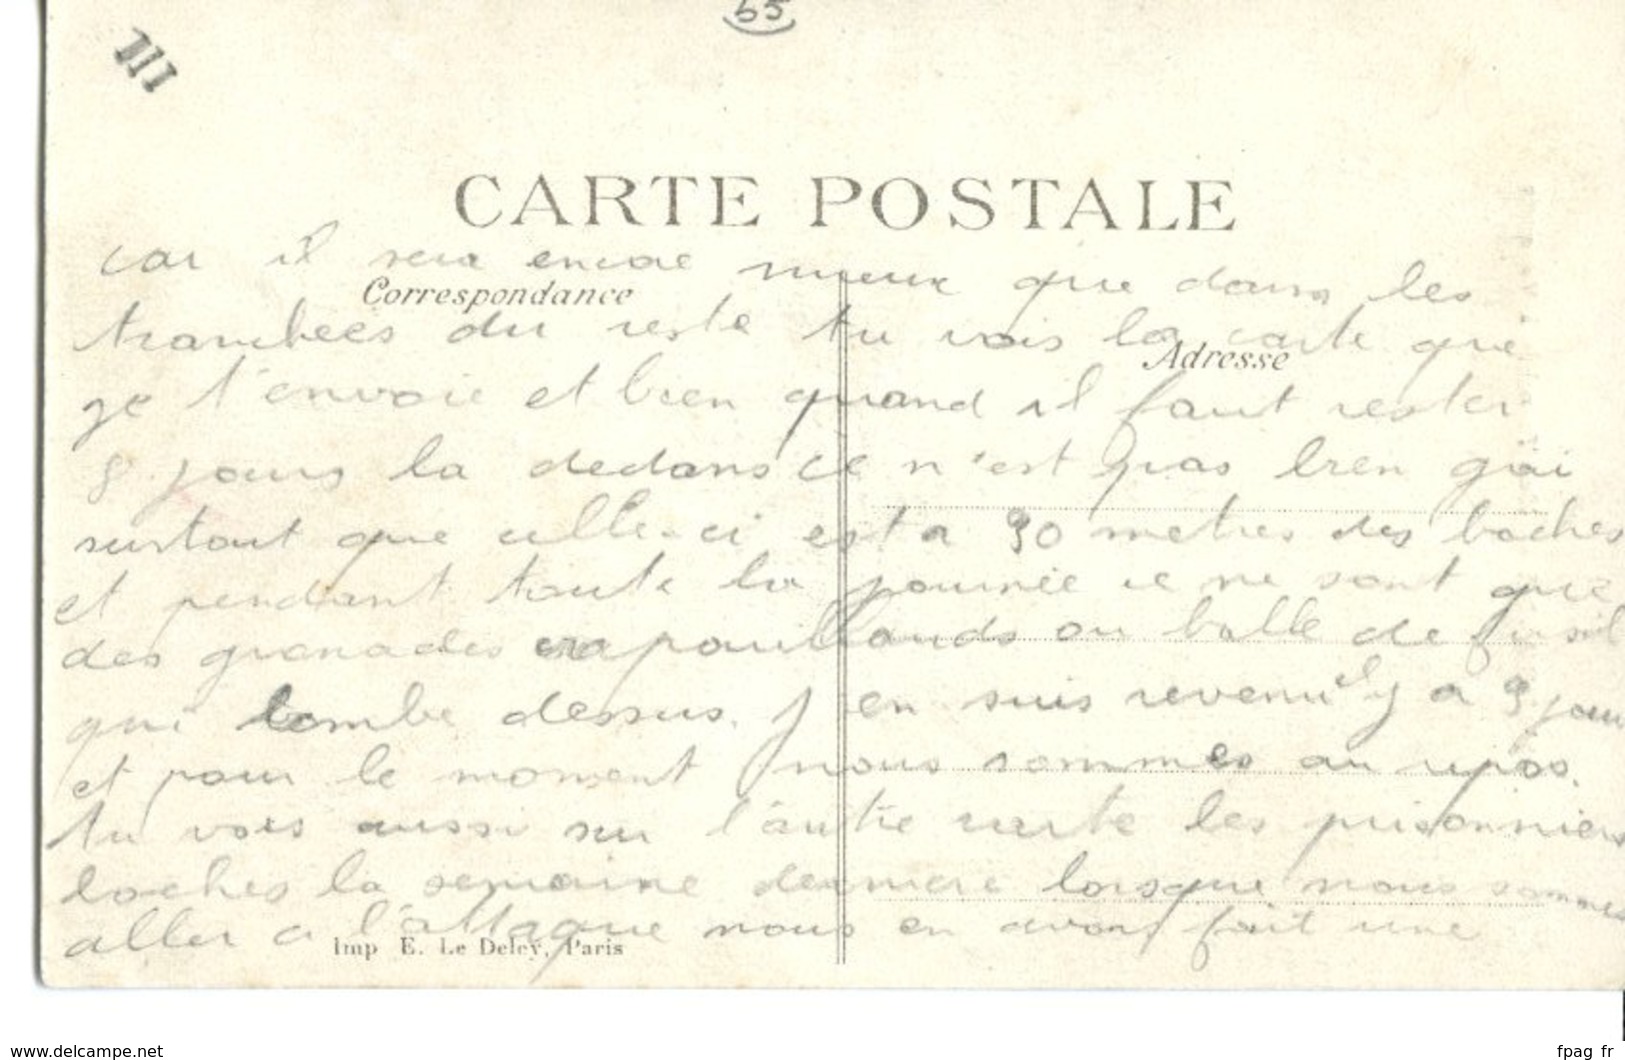 65
III
CARTE POSTALE
Correspondance
Adresse
car il sera encore mieux que dans les
tranchees du reste tu vois la carte que
je t'envoie et bien quand il faut rester
8 jours la dedans ce n'est pas bien gai
surtout que celle-ci est a 90 metres des boches
et pendant toute la journée ce ne sont que
des grenades crapouillauds ou balle de fusil
qui tombe dessus. j'en suis revenu il y a 9 jours
et pour le moment nous sommes au repos.
tu vois aussi sur l'autre carte les prisonniers
boches la semaine derniere lorsque nous sommes
aller a l'attaque nous en avons fait une
Imp E. Le Deley, Paris
www.delcampe.net
fpag_fr